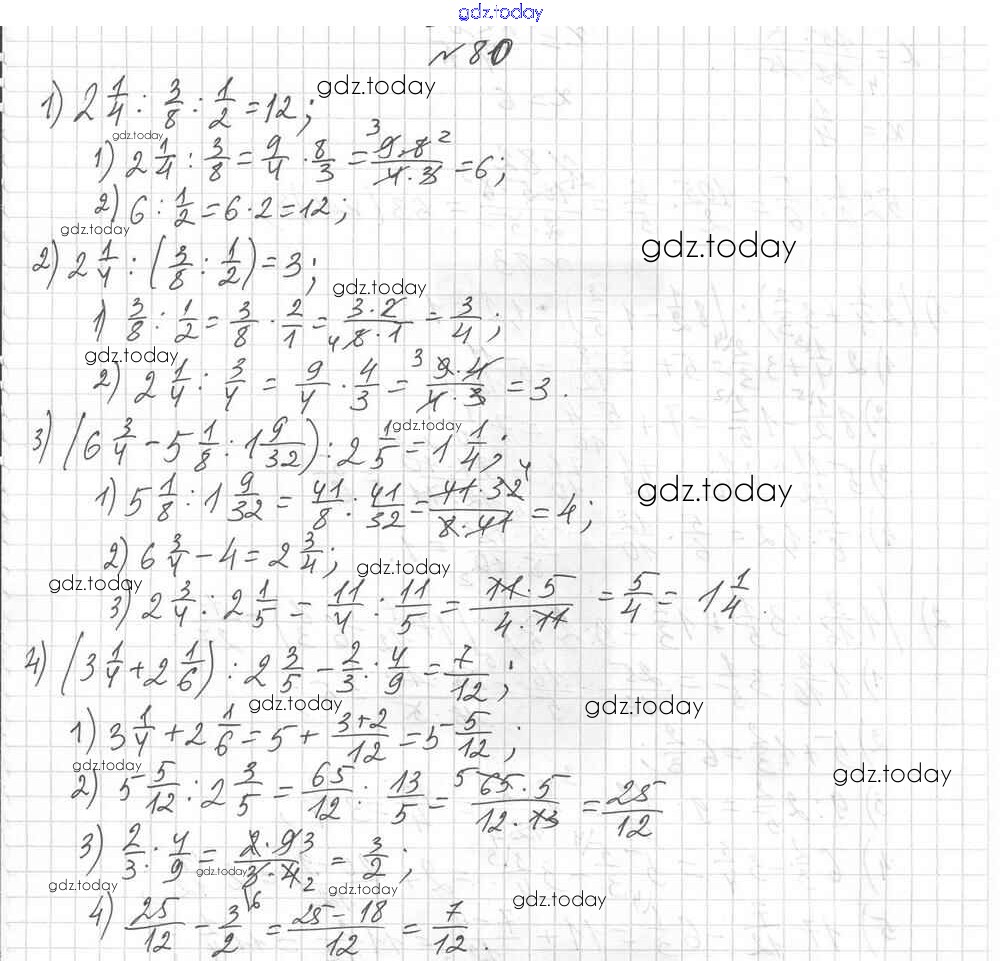 gdz.today
№ 80
1) 2 1/4 : 3/8 : 1/2 = 12; gdz.today
gdz.today
1) 2 1/4 : 3/8 = 9/4 · 8/3 = (9·8)/(4·3) 3 2 = 6;
2) 6 : 1/2 = 6 · 2 = 12;
gdz.today gdz.today
2) 2 1/4 : (3/8 : 1/2) = 3;
gdz.today
1) 3/8 : 1/2 = 3/8 · 2/1 = (3·2)/(8·1) 4 = 3/4;
gdz.today
2) 2 1/4 : 3/4 = 9/4 · 4/3 = 3 (9·4)/(4·3) = 3.
gdz.today
3) (6 3/4 - 5 1/8 : 1 9/32) : 2 1/5 = 1 1/4;
1) 5 1/8 : 1 9/32 = 41/8 : 41/32 = (41·32)/(8·41) 4 = 4; gdz.today
2) 6 3/4 - 4 = 2 3/4;
gdz.today gdz.today
3) 2 3/4 : 2 1/5 = 11/4 : 11/5 = (11·5)/(4·11) = 5/4 = 1 1/4.
4) (3 1/4 + 2 1/6) : 2 3/5 - 2/3 : 4/9 = 7/12;
gdz.today gdz.today
1) 3 1/4 + 2 1/6 = 5 + (3+2)/12 = 5 5/12;
gdz.today gdz.today
2) 5 5/12 : 2 3/5 = 65/12 : 13/5 = 5 (65·5)/(12·13) = 25/12
3) 2/3 : 4/9 = (2·9)/(3·4) 3 2 = 3/2;
gdz.today
gdz.today gdz.today gdz.today
4) 25/12 - 3/2 6 = (25-18)/12 = 7/12.